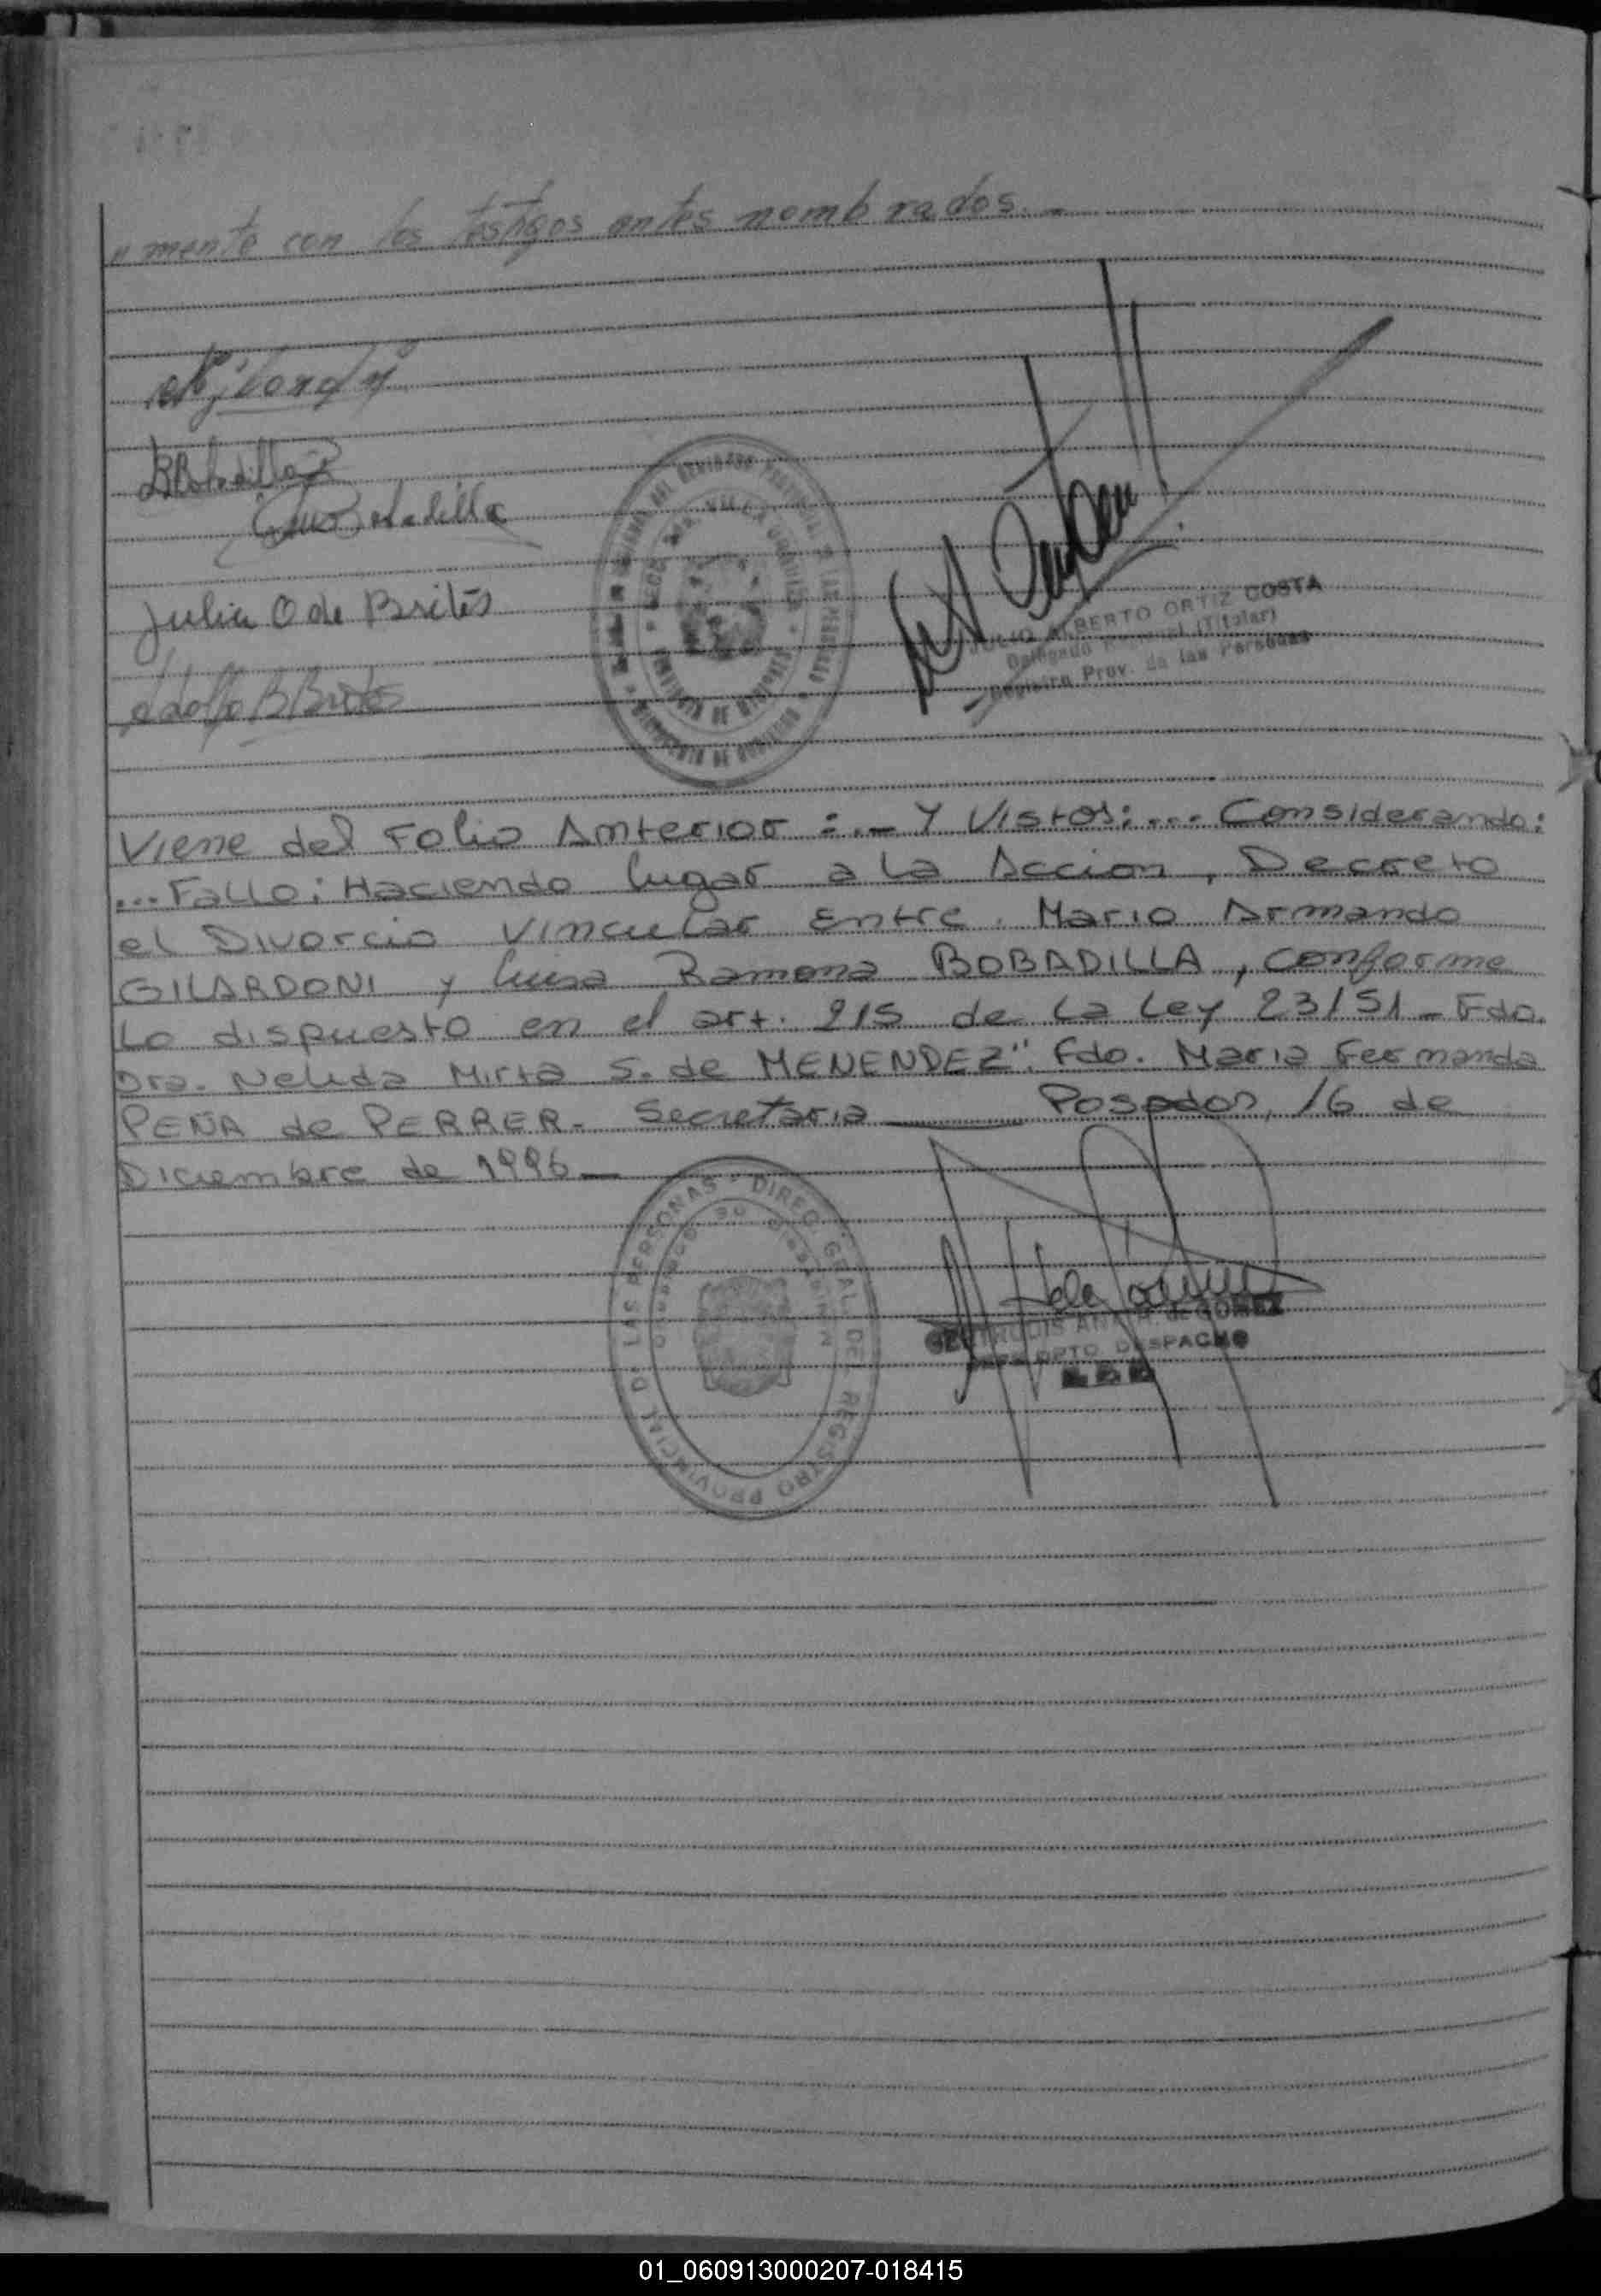 " mente con los testigos antes nombrados. -
Julia O de Brites
Adolfo B Brites
JULIO ALBERTO ORTIZ COSTA
Delegado (Titular)
Registro Prov. de las Personas
Viene del Folio Anterior : . - Y Vistos: ... Considerando:
... Fallo: Haciendo lugar a la Accion, Decreto
el Divorcio Vincular Entre Mario Armando
GILARDONI y Luisa Ramona BOBADILLA, conforme
Lo dispuesto en el art. 215 de La Ley 23151 - Fdo.
Dra. Nelida Mirta S. de MENENDEZ". Fdo. Maria Fernanda
PEÑA de PERRER - Secretaria — Posadas, 16 de
Diciembre de 1996 —
DIREC. GRAL. DEL REGISTRO PROVINCIAL D LAS PERSONAS
de GOMEZ
DPTO. DESPACHO
01_060913000207-018415